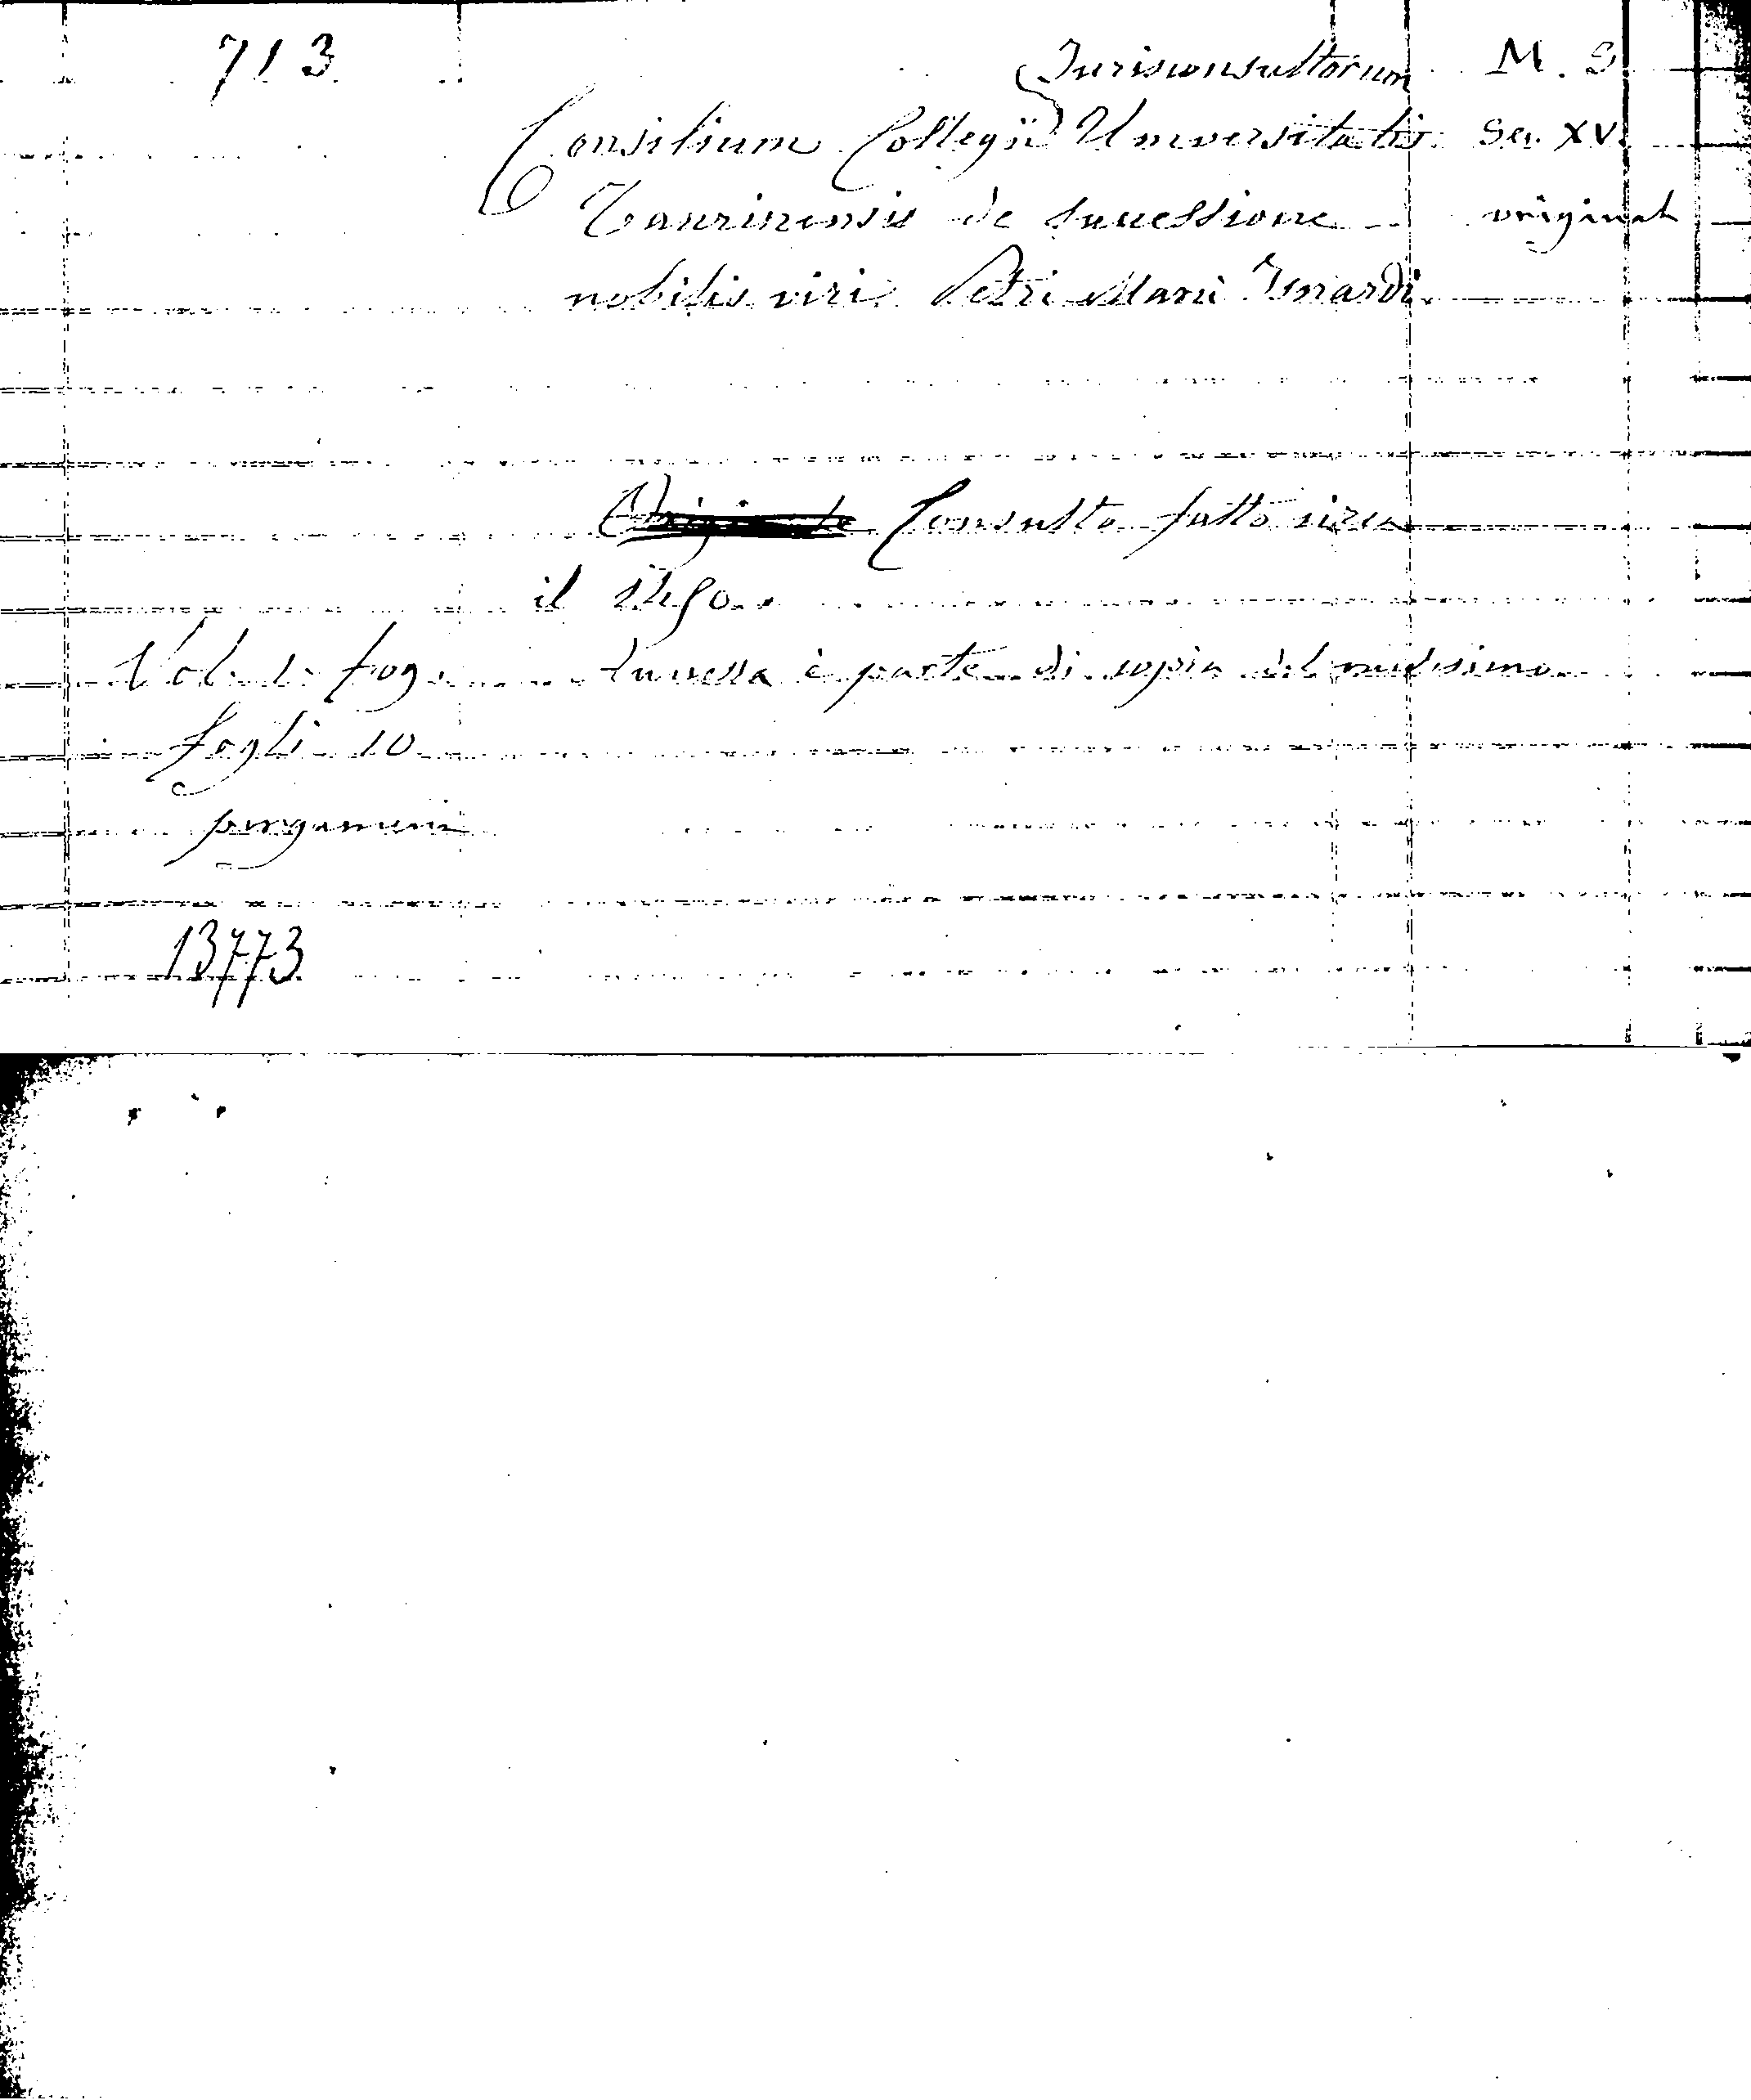 713 Jurisconsultorum M. S.
Consilium Collegii Universitatis Sec. XV.
Taurinensis de successione original
nobilis viri Petri Marie Isnardi.
Originale Consulto fatto circa
il 1450.
Vol. 1. fog. Annessa è parte di copia del medesimo
fogli 10
pergamena
13773